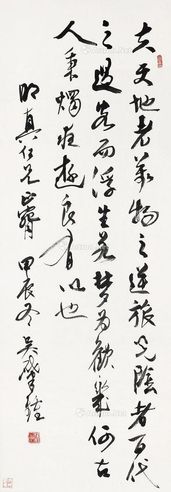 夫天地者萬物之逆旅光陰者百代
之過客而浮生若夢為歡幾何古
人秉燭夜遊良有以也
明真仁兄正 甲辰冬 吳肇鍾